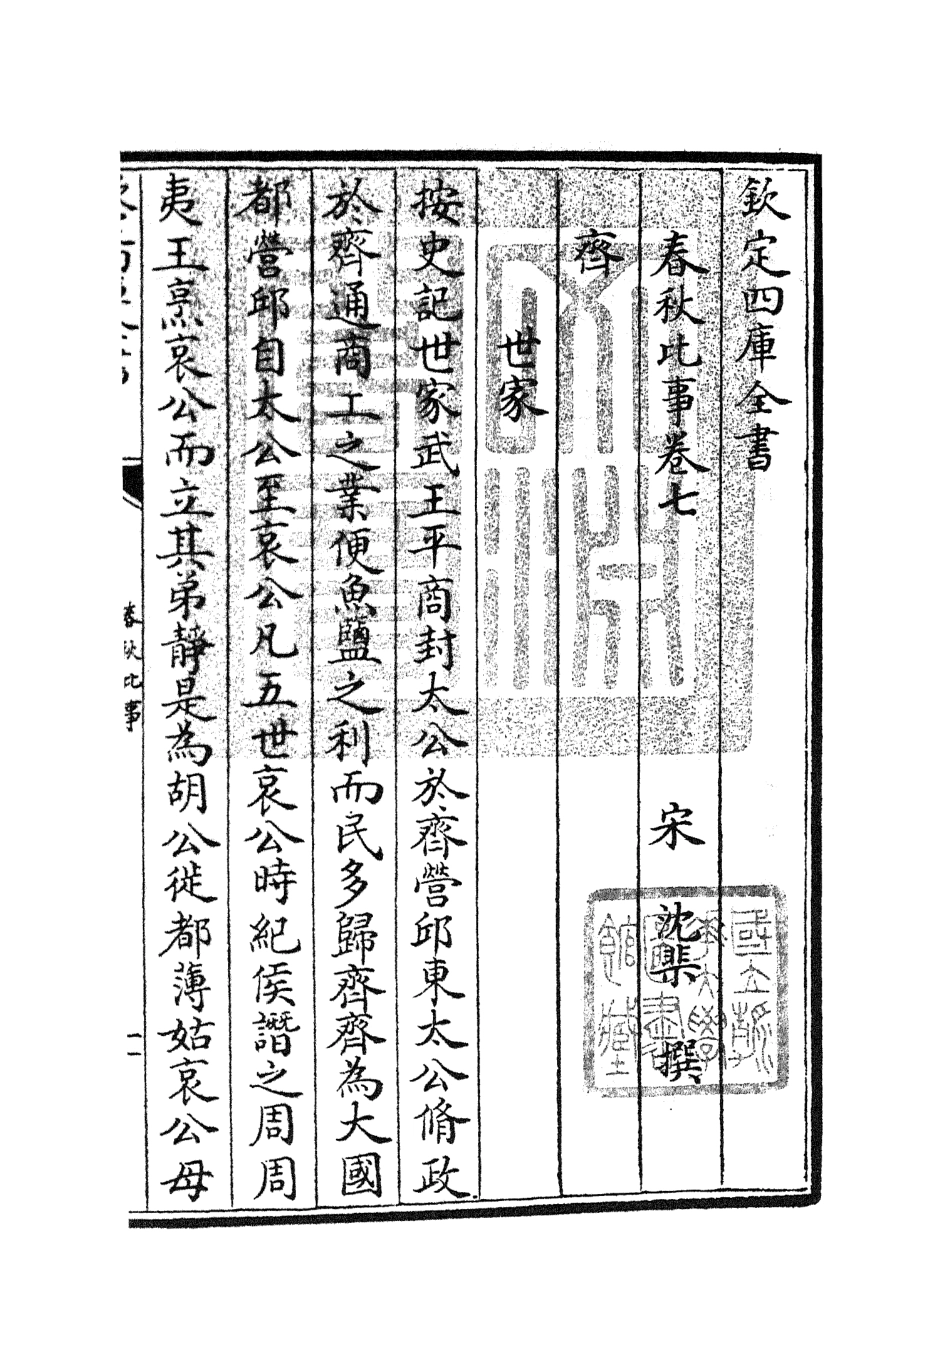 欽定四庫全書
春秋比事卷七
宋 沈棐 撰
齊
世家
按史記世家武王平商封太公於齊營邱東太公脩政
於齊通商工之業便魚鹽之利而民多歸齊齊為大國
都營邱自太公至哀公凡五世哀公時紀侯譖之周周
夷王烹哀公而立其弟靜是為胡公徙都薄姑哀公母
春秋比事